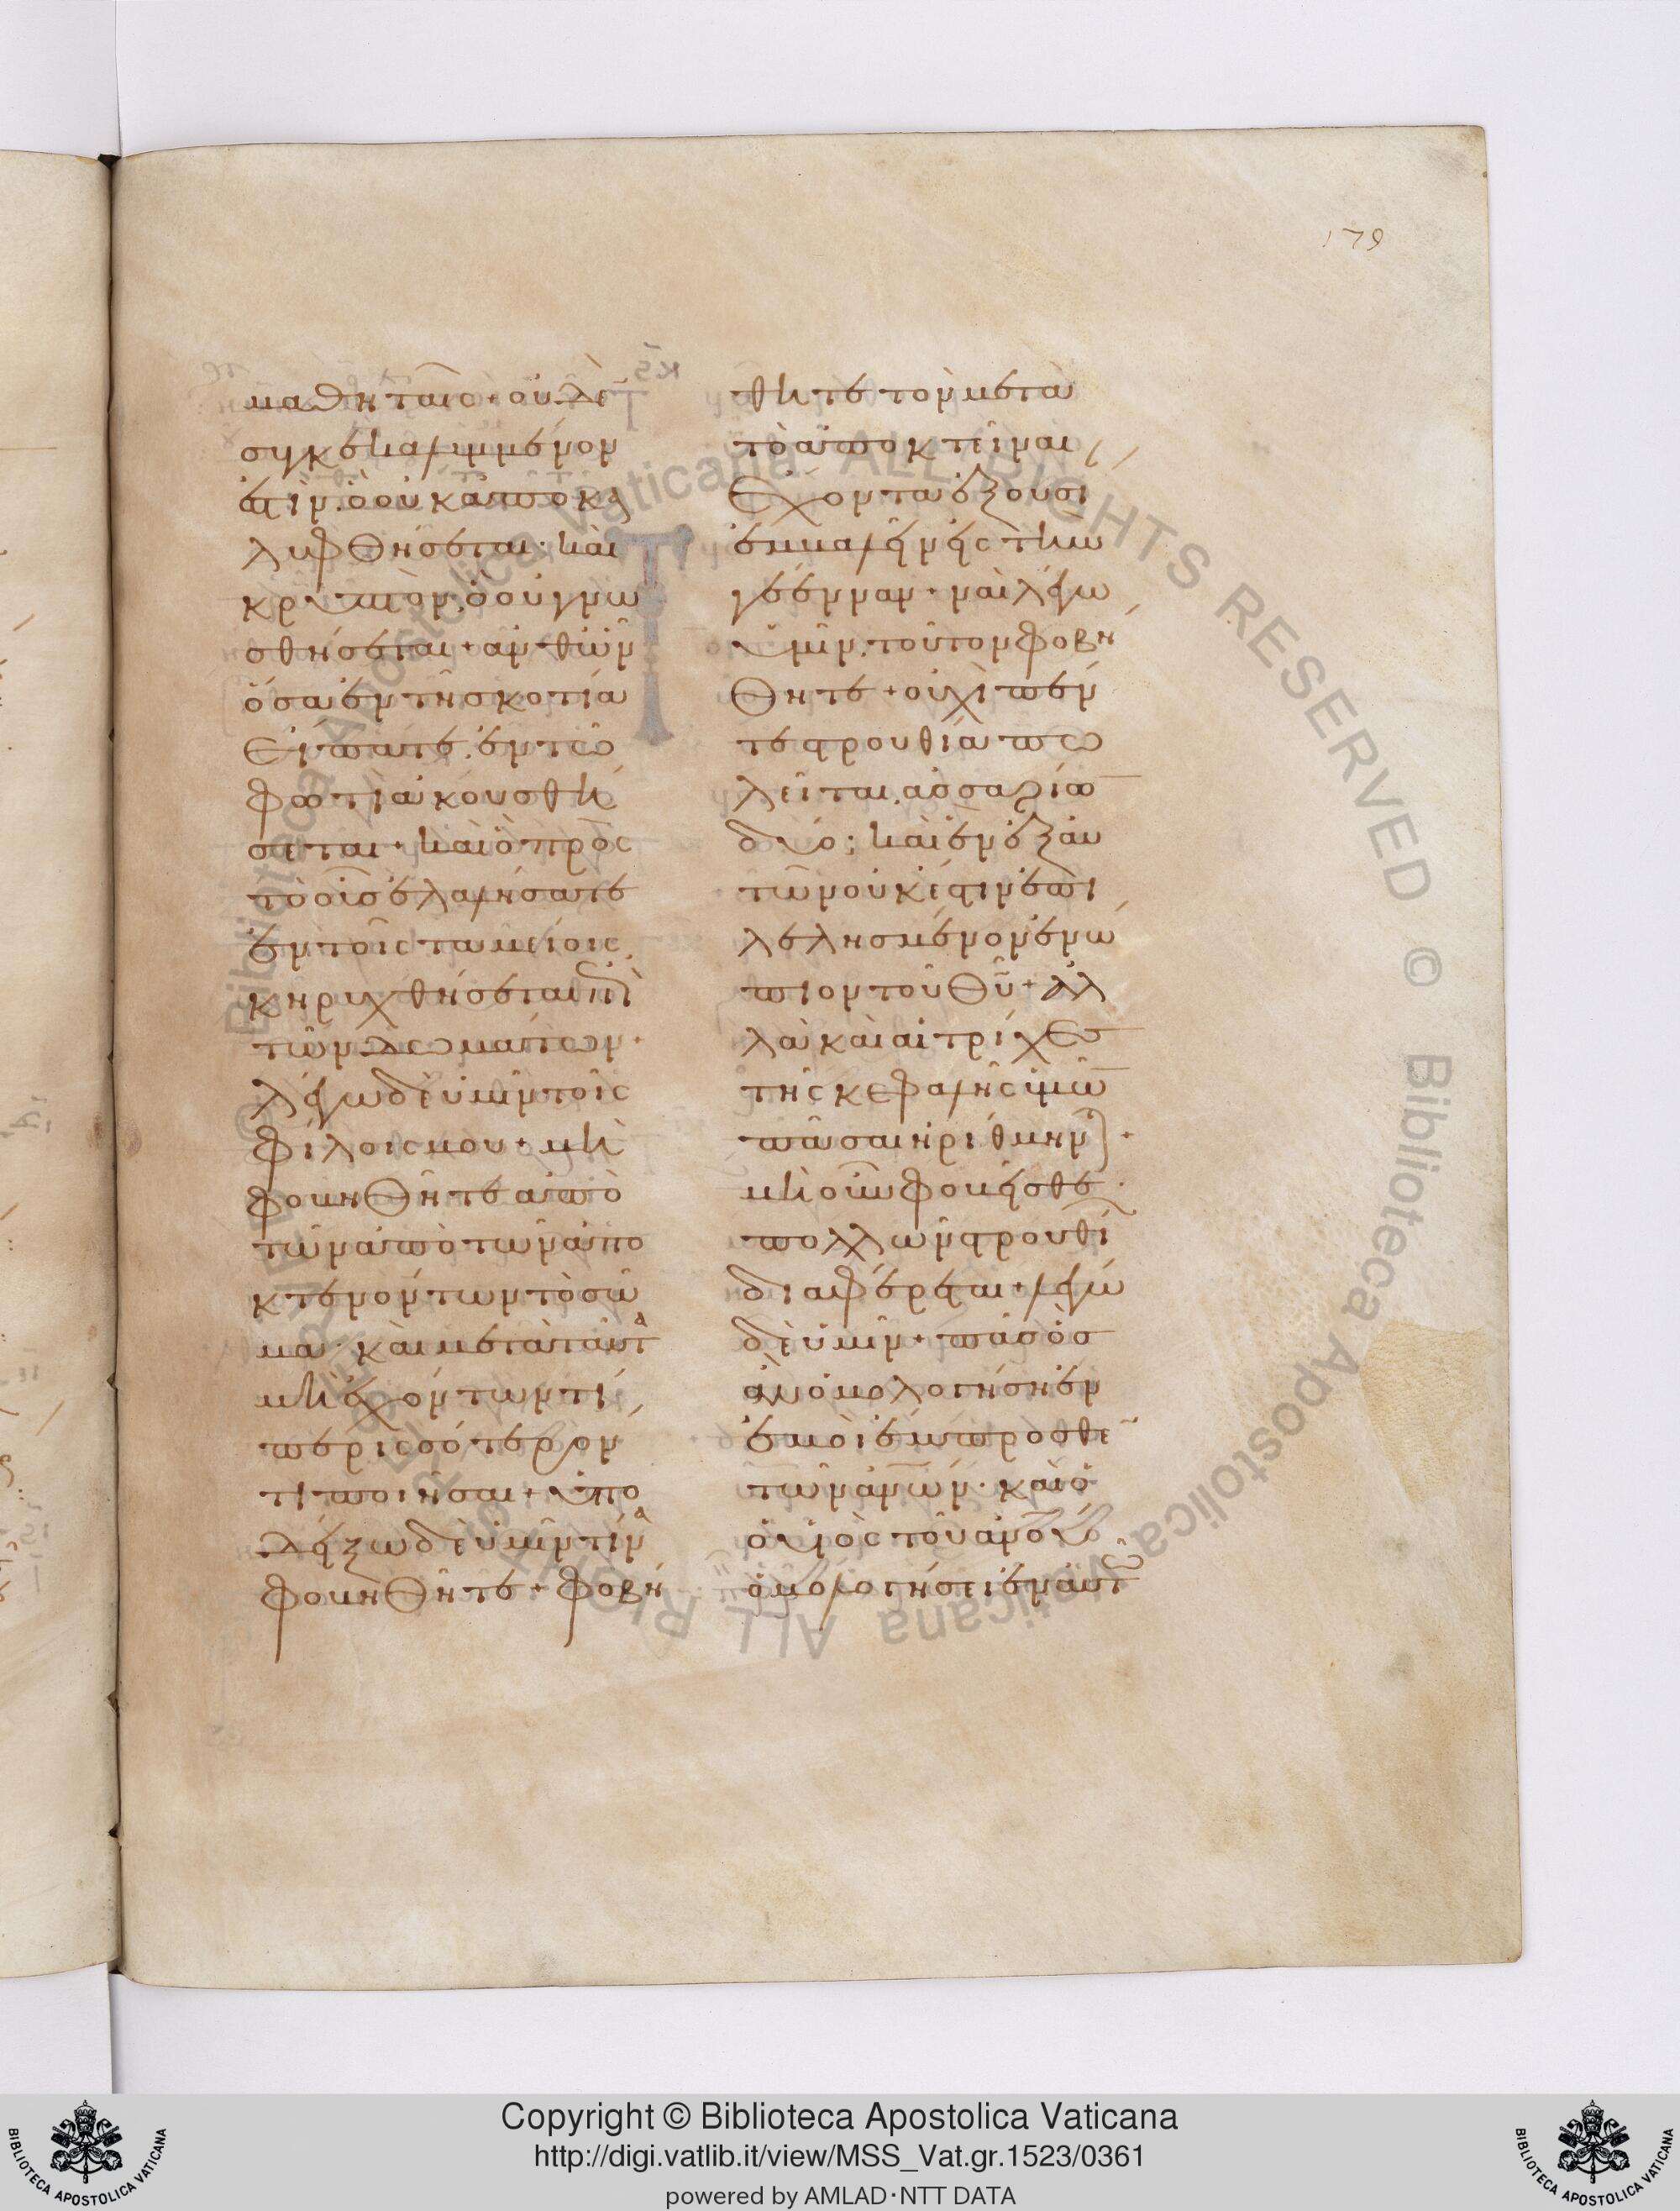 179
μαθηταῖς + οὐδὲ̄
συγκεκαλυμμένον
ἐστὶν, ὃ οὐκ ἀποκα
λυφθήσεται · καὶ
κρυπτὸν, ὃ οὐ γνω
σθήσεται + ἀνθ ὧν
ὅσα ἐν τῆ σκοτία
εἴπατε, ἐν τῶ
φωτὶ ἀκουσθή
σεται + καὶ ὃ πρὸς
τὸ οὖς ἐλαλήσατε
ἐν τοῖς ταμείοις,
κηρυχθήσεται ἐπὶ
τῶν δωμάτων ·
λέγω δὲ ὑμῖν τοῖς
φίλοις μου + μὴ
φοβηθῆτε ἀπὸ
τῶν ἀπὸ τῶν ἀπο
κτενόντων τὸ σῶ
μα · καὶ μετὰ ταῦτα
μὴ ἐχόντων τί
περισσότερον
τι ποιῆσαι + ὑπο
δείξω δὲ ὑμῖν τίνα
φοβηθῆτε + φοβή
θητε τὸν μετὰ
τὸ ἀποκτεῖναι,
ἔχοντα ἐξουσί
ἐμβαλεῖν εἰς τὴν
γέενναν + ναὶ λέγω
ὑμῖν, τοῦτον φοβή
θητε + οὐχὶ πέν
τε στρουθία πω
λεῖται ἀσσαρίω̄
δύο; καὶ ἓν ἐξ αὐ
τῶν οὐκ ἔστιν ἐπι
λελησμένον ἐνώ
πιον τοῦ θῦ + ἀλ
λὰ καὶ αἱ τρίχες
τῆς κεφαλῆς ὑμῶ̄
πᾶσαι ἠρίθμηνται +
μὴ οὖν φοβεῖσθε ·
πολλῶν στρουθί
διαφέρεται + λέγω
δὲ ὑμῖν + πᾶς ὃς
ἂν ὁμολογήση ἐν
ἐμοὶ ἔμπροσθε̄
τῶν ἀνῶν · καὶ ὁ
ὁ υἱὸς τοῦ ἀνου
ὁμολογήσει ἐν αὐτῶ
Copyright © Biblioteca Apostolica Vaticana
http://digi.vatlib.it/view/MSS_Vat.gr.1523/0361
powered by AMLAD·NTT DATA
BIBLIOTECA APOSTOLICA VATICANA
BIBLIOTECA APOSTOLICA VATICANA